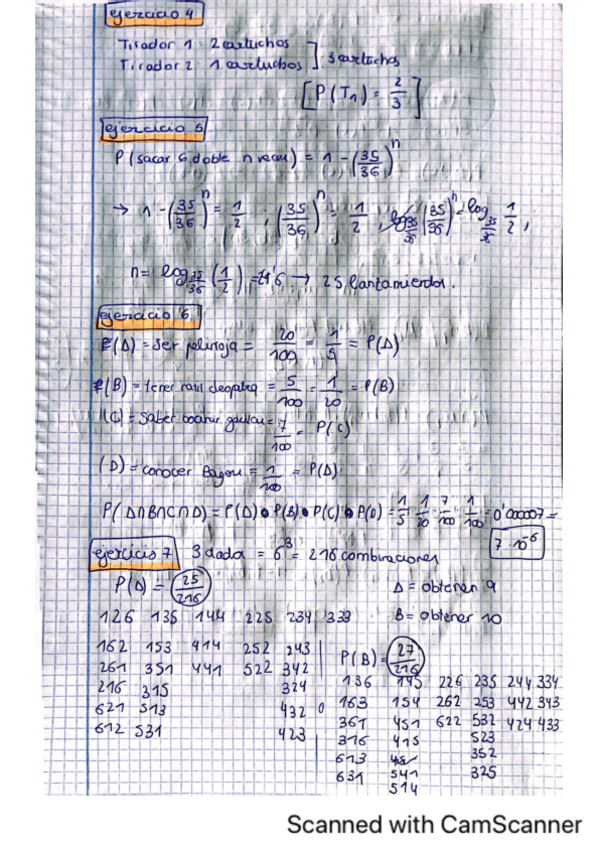 ejercicio 4
Tirador 1: 2 cartuchos
Tirador 2: 1 cartuchos ] 3 cartuchos
[P(T1) = 2/3]
ejercicio 5
P(sacar 6 doble n veces) = 1 - (35/36)^n
→ 1 - (35/36)^n = 1/2 ; (35/36)^n = 1/2 , log35/36 (35/36)^n = log35/36 1/2 ;
n = log35/36 (1/2) = → 25 lanzamientos.
ejercicio 6
P(A) = ser pelirroja = 20/100 = 1/5 = P(A)
P(B) = tener nariz cleopatra = 5/100 = 1/20 = P(B)
P(C) = saber cocinar = 7/100 = P(C)
(D) = conocer = 1/100 = P(D)
P(A∩B∩C∩D) = P(A)·P(B)·P(C)·P(D) = 1/5 · 1/20 · 7/100 · 1/100 = 0'000007 =
7·10^-6
ejercicio 7 3 dados = 6^3 = 216 combinaciones
P(A) = 25/216 A = obtener 9
126 135 144 225 234 333 B = obtener 10
162 153 414 252 243 P(B) = 27/216
261 351 441 522 342
216 315 324
621 513 432
612 531 423
136 145 226 235 244 334
163 154 262 253 442 343
361 451 622 532 424 433
316 415 523
613 451 352
631 541 325
514
Scanned with CamScanner